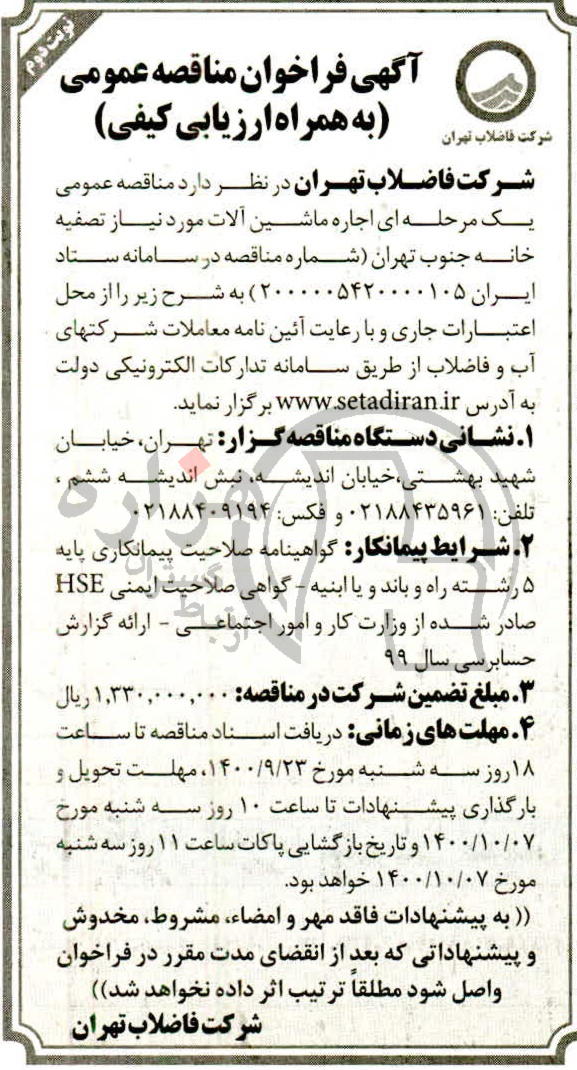 نوبت دوم
شرکت فاضلاب تهران
آگهی فراخوان مناقصه عمومی
(به همراه ارزیابی کیفی)
شرکت فاضلاب تهران در نظر دارد مناقصه عمومی
یک مرحله ای اجاره ماشین آلات مورد نیاز تصفیه
خانه جنوب تهران (شماره مناقصه در سامانه ستاد
ایران ۲۰۰۰۰۰۵۴۲۰۰۰۰۱۰۵) به شرح زیر را از محل
اعتبارات جاری و با رعایت آئین نامه معاملات شرکتهای
آب و فاضلاب از طریق سامانه تدارکات الکترونیکی دولت
به آدرس www.setadiran.ir برگزار نماید.
۱. نشانی دستگاه مناقصه گزار: تهران، خیابان
شهید بهشتی،خیابان اندیشه، نبش اندیشه ششم ،
تلفن: ۰۲۱۸۸۴۳۵۹۶۱ و فکس: ۰۲۱۸۸۴۰۹۱۹۴
۲. شرایط پیمانکار: گواهینامه صلاحیت پیمانکاری پایه
۵ رشته راه و باند و یا ابنیه - گواهی صلاحیت ایمنی HSE
صادر شده از وزارت کار و امور اجتماعی - ارائه گزارش
حسابرسی سال ۹۹
۳. مبلغ تضمین شرکت در مناقصه: ۱,۳۳۰,۰۰۰,۰۰۰ ریال
۴. مهلت های زمانی: دریافت اسناد مناقصه تا ساعت
۱۸ روز سه شنبه مورخ ۱۴۰۰/۹/۲۳، مهلت تحویل و
بارگذاری پیشنهادات تا ساعت ۱۰ روز سه شنبه مورخ
۱۴۰۰/۱۰/۰۷ و تاریخ بازگشایی پاکات ساعت ۱۱ روز سه شنبه
مورخ ۱۴۰۰/۱۰/۰۷ خواهد بود.
(( به پیشنهادات فاقد مهر و امضاء، مشروط، مخدوش
و پیشنهاداتی که بعد از انقضای مدت مقرر در فراخوان
واصل شود مطلقاً ترتیب اثر داده نخواهد شد))
شرکت فاضلاب تهران
هزاره
گستران
ارتباط